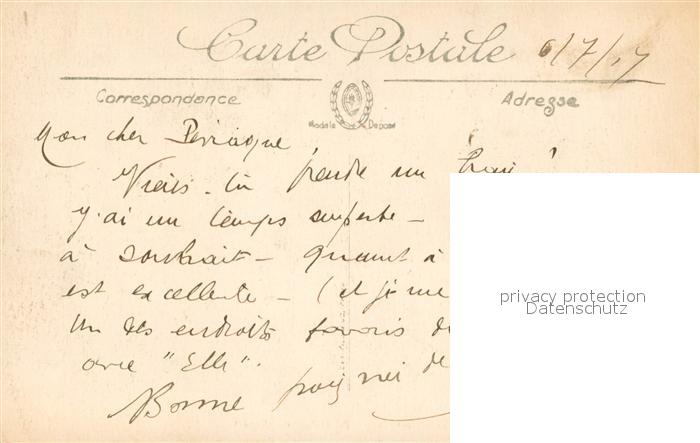 Carte Postale
6/7/17
Correspondance
Adresse
Modèle Déposé
Mon cher
Viens-tu prendre un
Y ai un temps superbe -
à souhait - quant à
est excellente - (et je me
Un des endroits favoris de
avec "Elle".
Bonne poignée de
privacy protection
Datenschutz